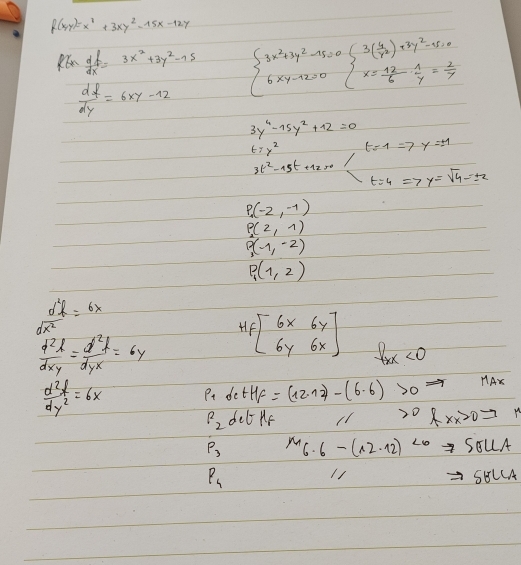 f(x,y)=x³ + 3xy² - 15x - 12y
df/dx = 3x² + 3y² - 15
df/dy = 6xy - 12
{ 3x² + 3y² - 15 = 0
{ 6xy - 12 = 0
{ 3(4/y²) + 3y² - 15 = 0
{ x = 12/6 · 1/y = 2/y
3y⁴ - 15y² + 12 = 0
t = y²
3t² - 15t + 12 = 0
t = 1 => y = ±1
t = 4 => y = √4 = ±2
P₁(-2, -1)
P₂(2, 1)
P₃(-1, -2)
P₄(1, 2)
d²f/dx² = 6x
d²f/dxy = d²f/dyx = 6y
d²f/dy² = 6x
Hf [ 6x 6y
6y 6x ]
fxx < 0
P₁ det Hf = (12·12) - (6·6) > 0 => MAX
P₂ det Hf // > 0 fxx > 0 =>
P₃ 6·6 - (12·12) < 0 => SELLA
P₄ // => SELLA